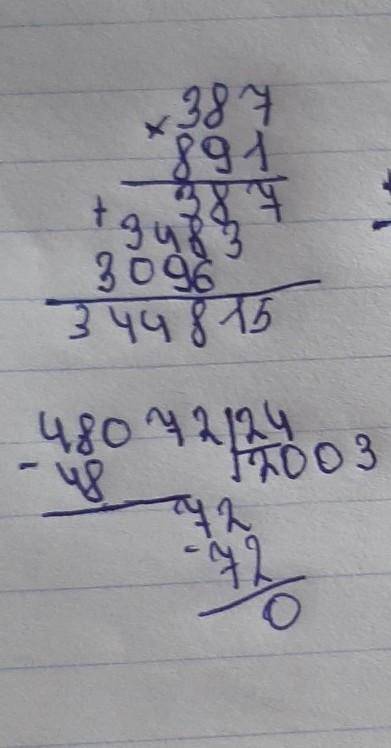 × 387
891
+ 387
3483
3096
344815
48072 | 24
- 48 | 2003
72
- 72
0